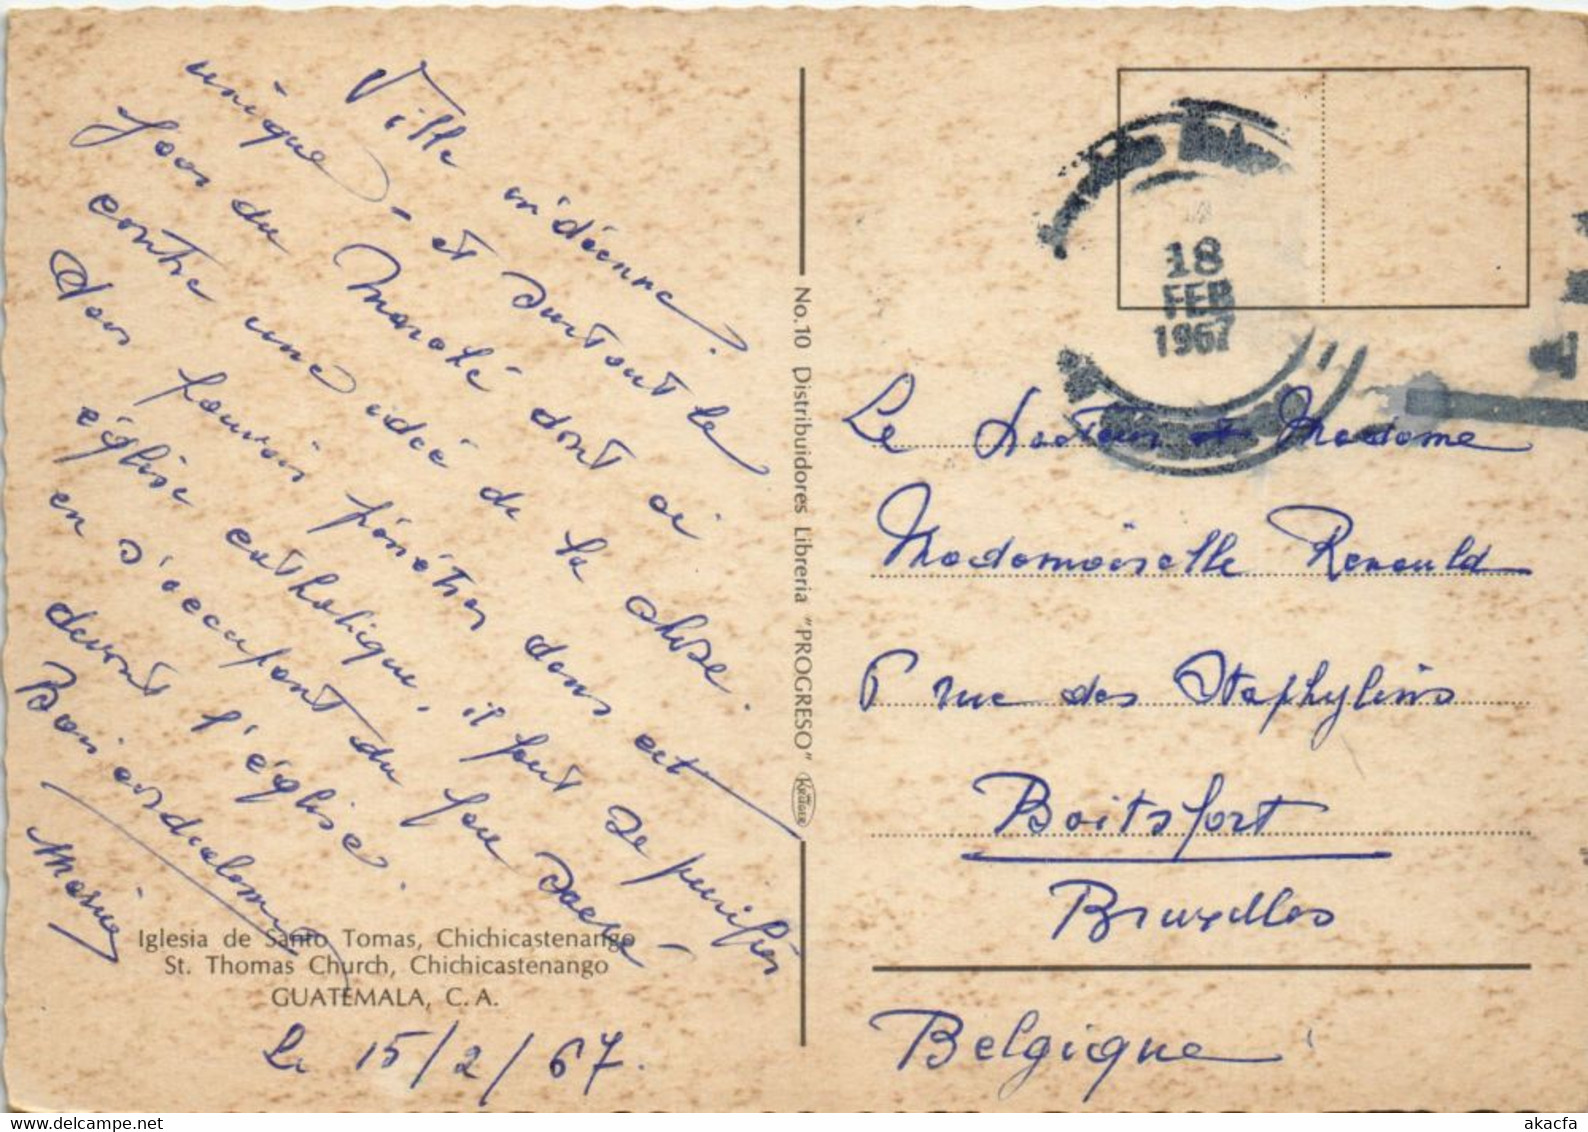 Ville indienne
unique - et surtout le
jour du Marché dont ci
contre une idée de la chose.
Pour pouvoir pénétrer dans cet
église catholique, il faut se purifier
en s'occupant du feu sacré
devant l'église.
Bien cordialement
Iglesia de Santo Tomas, Chichicastenango
St. Thomas Church, Chichicastenango
GUATEMALA, C. A.
Le 15/2/67.
No. 10 Distribuidores Libreria "PROGRESO"
KRÜGER
18
FEB
1967
Le Docteur et Madame
Mademoiselle Renauld
6 rue des Staphylins
Boitsfort
Bruxelles
Belgique
akacfa